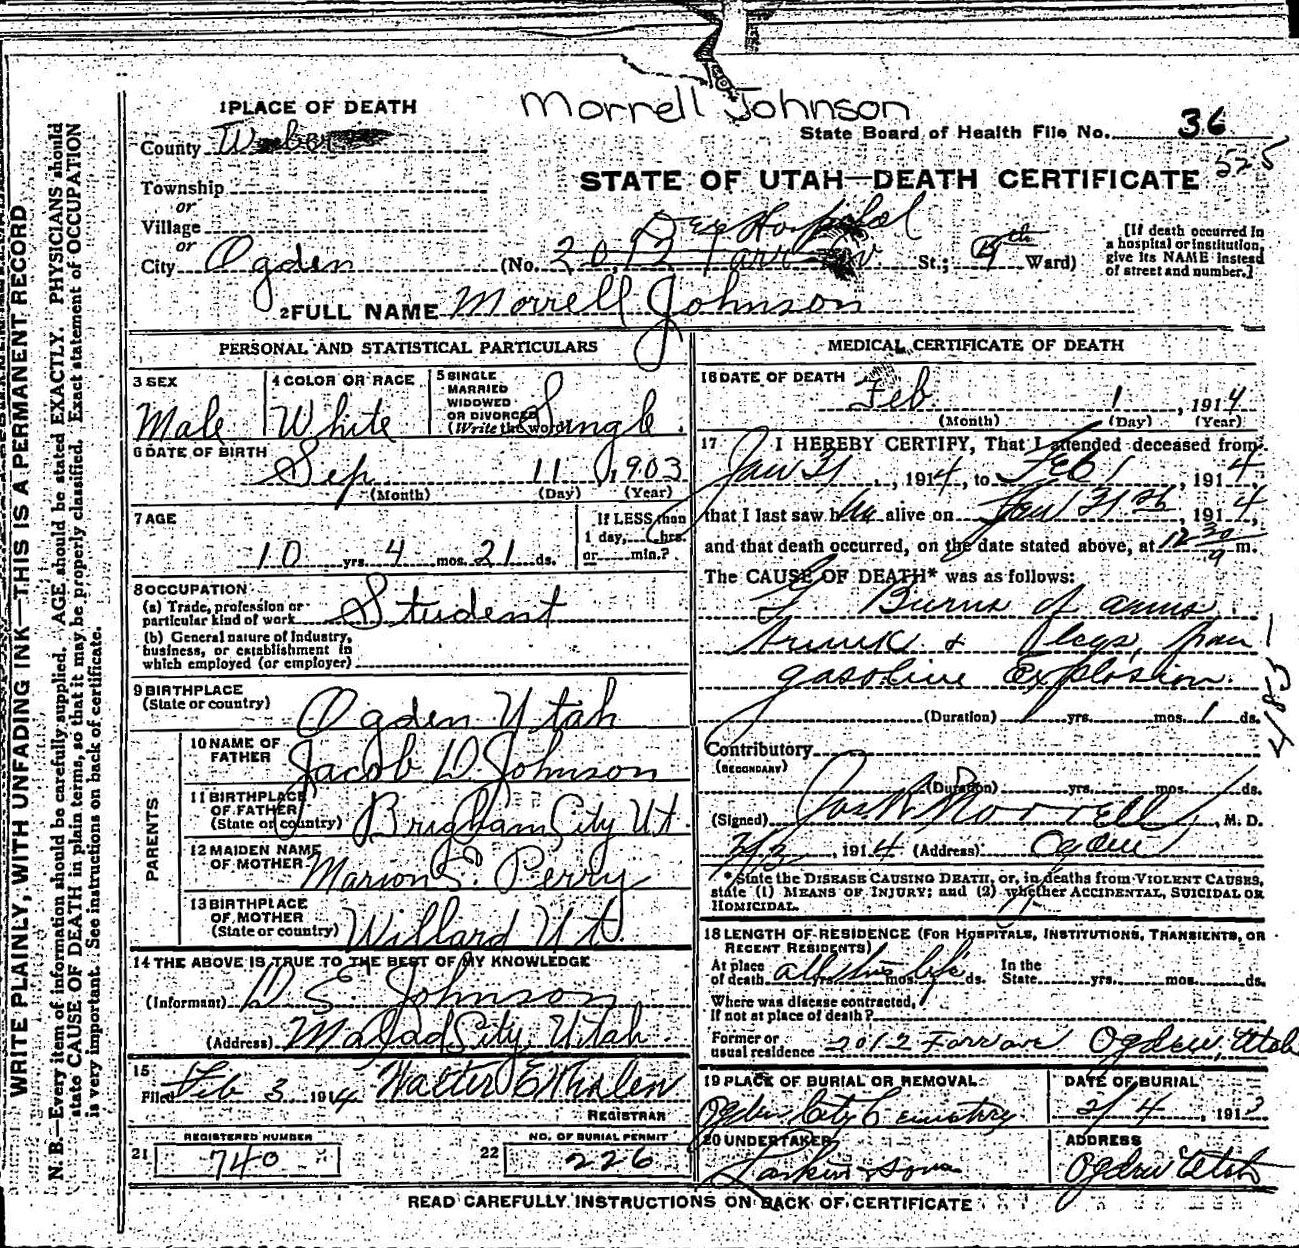 Morrell Johnson
1 PLACE OF DEATH
State Board of Health File No. 36
525
County Weber
STATE OF UTAH—DEATH CERTIFICATE
Township
or
Village
or
City Ogden
Dee Hospital
(No. 2012 Farr Av St.; 4th Ward)
[If death occurred in
a hospital or institution,
give its NAME instead
of street and number.]
2 FULL NAME Morrell Johnson
PERSONAL AND STATISTICAL PARTICULARS
3 SEX
Male
4 COLOR OR RACE
White
5 SINGLE
MARRIED
WIDOWED
OR DIVORCED
(Write the word)
Single
6 DATE OF BIRTH
Sep 11, 1903
(Month) (Day) (Year)
7 AGE
10 yrs. 4 mos. 21 ds.
If LESS than
1 day, hrs.
or min.?
8 OCCUPATION
(a) Trade, profession or
particular kind of work Student
(b) General nature of Industry,
business, or establishment in
which employed (or employer)
9 BIRTHPLACE
(State or country)
Ogden Utah
PARENTS
10 NAME OF
FATHER
Jacob D. Johnson
11 BIRTHPLACE
OF FATHER
(State or country) Brigham City Ut.
12 MAIDEN NAME
OF MOTHER
Marion E. Perry
13 BIRTHPLACE
OF MOTHER
(State or country) Willard Ut.
14 THE ABOVE IS TRUE TO THE BEST OF MY KNOWLEDGE
(Informant) D. E. Johnson
(Address) Malad City, Utah
15
Filed Feb 3 1914 Walter E Whalen
REGISTRAR
REGISTERED NUMBER
21 740
NO. OF BURIAL PERMIT
22 226
MEDICAL CERTIFICATE OF DEATH
16 DATE OF DEATH
Feb 1, 1914
(Month) (Day) (Year)
17 I HEREBY CERTIFY, That I attended deceased from
Jan 31, 1914, to Feb 1, 1914,
that I last saw him alive on Jan 31st, 1914,
and that death occurred, on the date stated above, at 12 30 a m.
The CAUSE OF DEATH* was as follows:
Burns of arms
Trunk & legs, from
gasoline Explosion.
(Duration) yrs. mos. 1 ds.
4851
Contributory
(SECONDARY)
(Duration) yrs. mos. ds.
(Signed) Jos R Morrell, M. D.
2/2, 1914 (Address) Ogden
*State the DISEASE CAUSING DEATH, or, in deaths from VIOLENT CAUSES,
state (1) MEANS OF INJURY; and (2) whether ACCIDENTAL, SUICIDAL OR
HOMICIDAL.
18 LENGTH OF RESIDENCE (FOR HOSPITALS, INSTITUTIONS, TRANSIENTS, OR
RECENT RESIDENTS)
At place
of death all his life yrs. mos. ds. In the
State yrs. mos. ds.
Where was disease contracted,
If not at place of death?
Former or
usual residence 2012 Farr ave Ogden, Utah
19 PLACE OF BURIAL OR REMOVAL
Ogden City Cemetery
DATE OF BURIAL
2/4, 1913
20 UNDERTAKER
Larkin & Sons
ADDRESS
Ogden Utah
READ CAREFULLY INSTRUCTIONS ON BACK OF CERTIFICATE
WRITE PLAINLY, WITH UNFADING INK—THIS IS A PERMANENT RECORD
N. B.—Every item of information should be carefully supplied. AGE should be stated EXACTLY. PHYSICIANS should
state CAUSE OF DEATH in plain terms, so that it may be properly classified. Exact statement of OCCUPATION
is very important. See instructions on back of certificate.